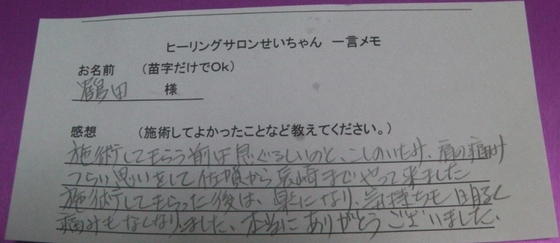 ヒーリングサロンせいちゃん 一言メモ
お名前 (苗字だけでOk)
鶴田 様
感想 (施術してよかったことなど教えてください。)
施術してもらう前は息ぐるしいのと、こしのいたみ、肩の痛み
つらい思いをして佐賀から長崎までやって来ました
施術してもらった後は、楽になり、気持ちも明るく
痛みもなくなりました、本当にありがとうございました。